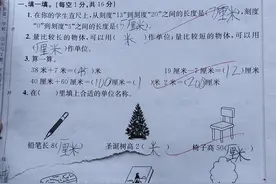 一填一填。(每空1分,共16分)
1.在你的学生直尺上,从刻度"13"到刻度"20"之间的长度是(7厘米),刻度
"0"到刻度"6"之间的长度是(6厘米)。
2.量比较长的物体,可以用(米)作单位;量比较短的物体,可以用
(厘米)作单位。
3.算一算。
38米+7米=(45)米 19厘米-7厘米=(12)厘米
40厘米+60厘米=(100)厘米=(1)米 2米=(200)厘米
4.在( )里填上合适的单位名称。
铅笔长8(厘米) 圣诞树高2(米) 椅子高50(厘米)